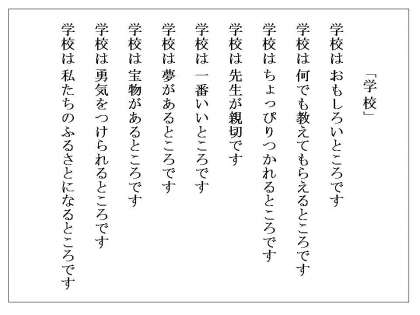 「学校」
学校は おもしろいところです
学校は 何でも教えてもらえるところです
学校は ちょっぴりつかれるところです
学校は 先生が親切です
学校は 一番いいところです
学校は 夢があるところです
学校は 宝物があるところです
学校は 勇気をつけられるところです
学校は 私たちのふるさとになるところです